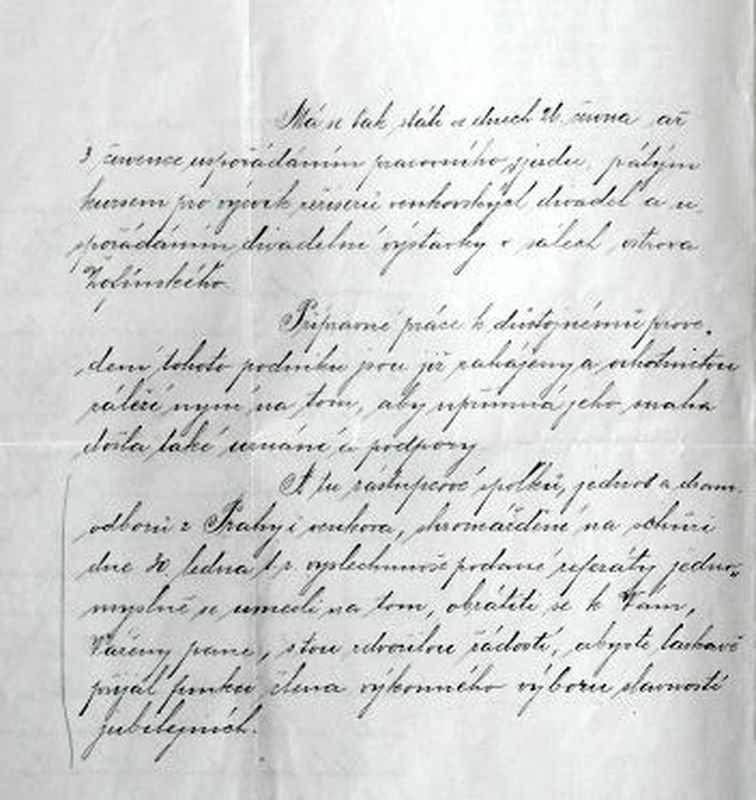 Má se tak státi ve dnech 26. června až
3. července uspořádáním pracovního sjezdu, pátým
kursem pro výcvik režiserů venkovských divadel a u-
spořádáním divadelní výstavky v sálech ostrova
Žofínského.
Přípravné práce k důstojnému prove-
dení tohoto podniku jsou již zahájeny a ochotnictvu
záleží nyní na tom, aby upřímná jeho snaha
došla také uznání a podpory
A tu zástupcové spolků, jednot a dram.
odborů z Prahy i venkova, shromáždění na schůzi
dne 30. ledna t. r. vyslechnuvše podané referáty jedno-
myslně se usnesli na tom, obrátiti se k Vám,
Vážený pane, s tou zdvořilou žádostí, abyste laskavě
přijal funkci člena výkonného výboru slavností
jubilejních.